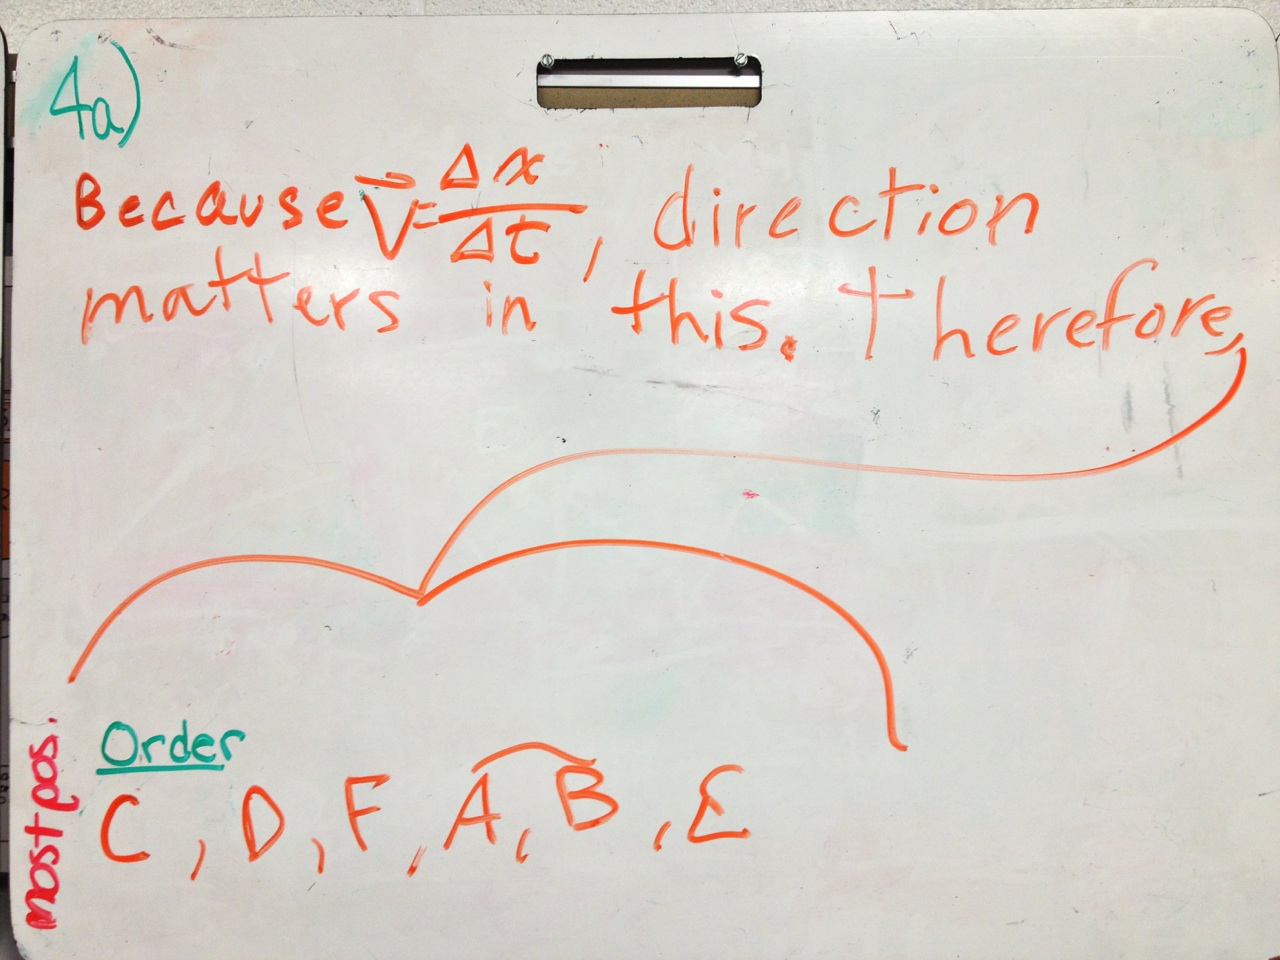 4a)
Because V⃗ = Δx/Δt, direction
matters in this. Therefore,
Order
most pos.
C, D, F, A, B, E